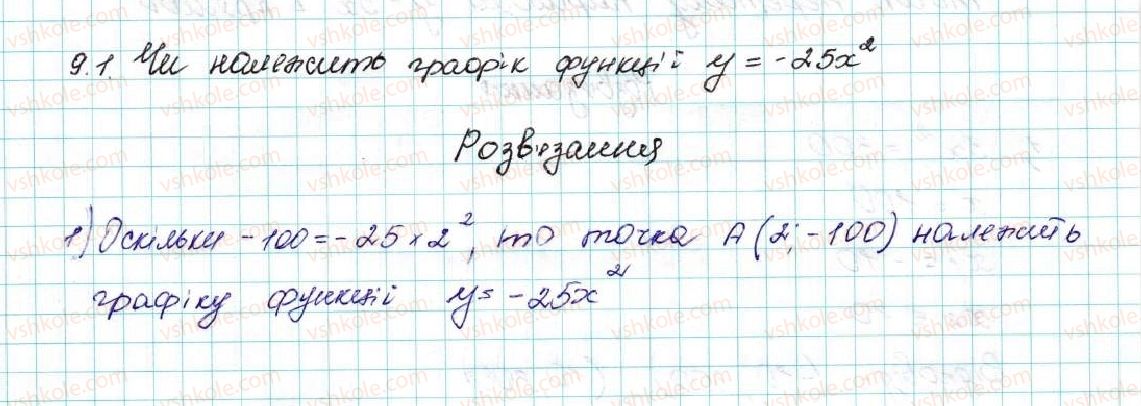 9.1 Чи належить графік функцій y = -25x²
Розв'язання
1) Оскільки -100 = -25 × 2², то точка A (2; -100) належить
графіку функцій y = -25x²